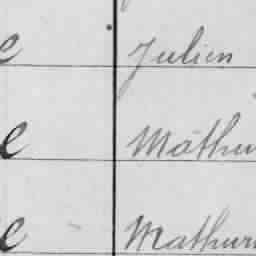 e Julien
e Mathu
e Mathur